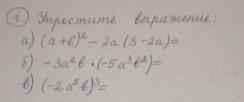 ① Упростить выражение:
а) (а+6)² - 2а (3-2а)=
б) -3a²b · (-5a³b²)=
в) (-2a⁵b)³=